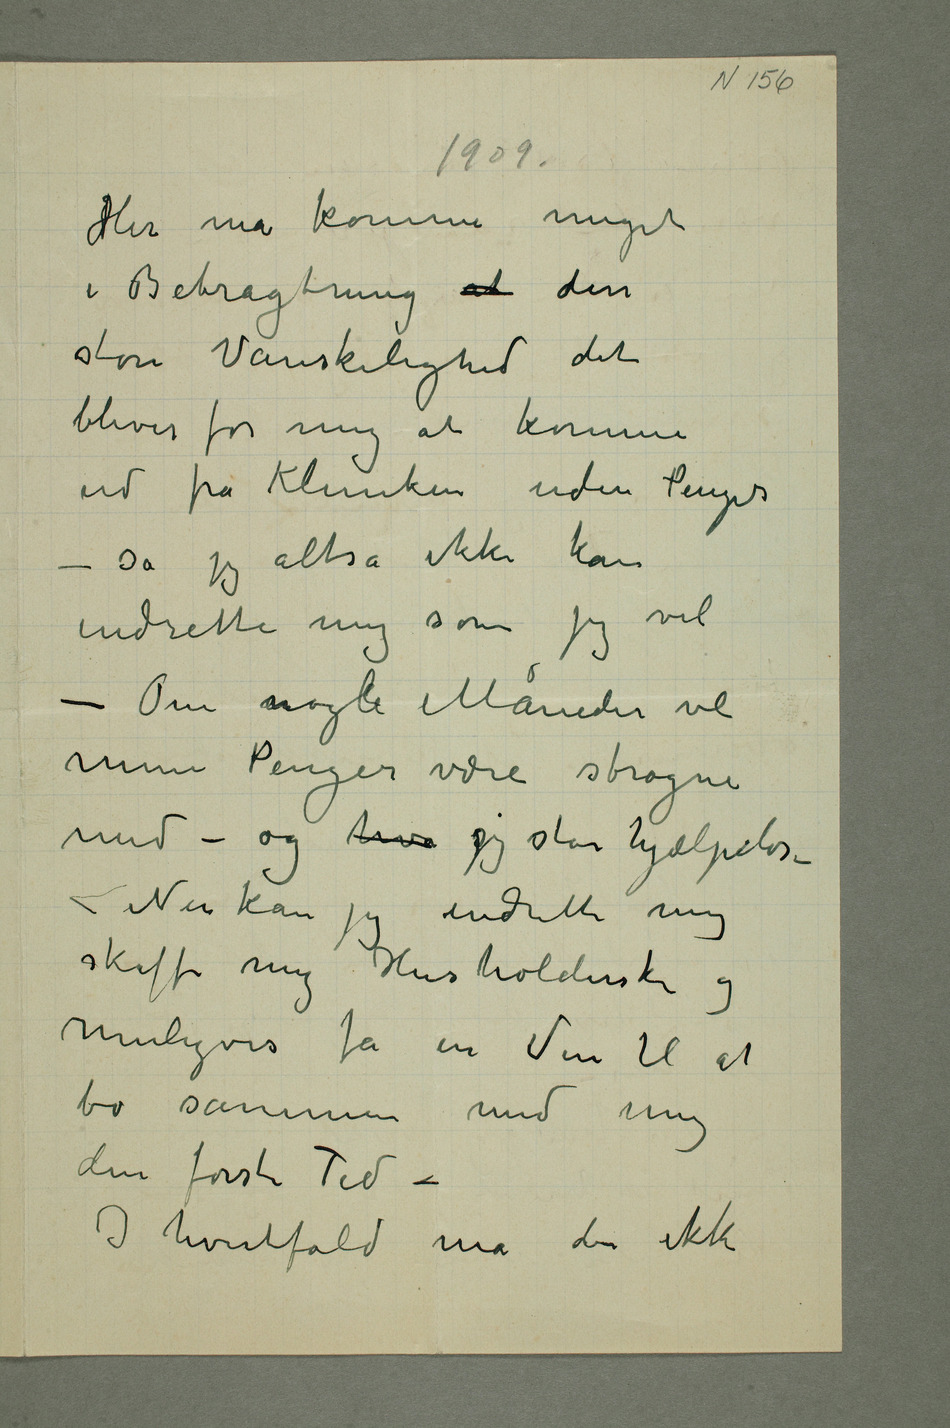 N 156
1909.
Her må komme meget
i Betragtning at den
store Vanskelighed det
bliver for mig at komme
ud fra Kliniken uden Penger
– så jeg altså ikke kan
indrette mig som jeg vil
– Om nogle Måneder vil
mine Penger være strøgne
med – og hva jeg står hjælpeløs –
– Nu kan jeg indrette mig
skaffe mig Husholderske og
muligvis få en Ven til at
bo sammen med mig
den første Tid –
I hvertfald må du ikke